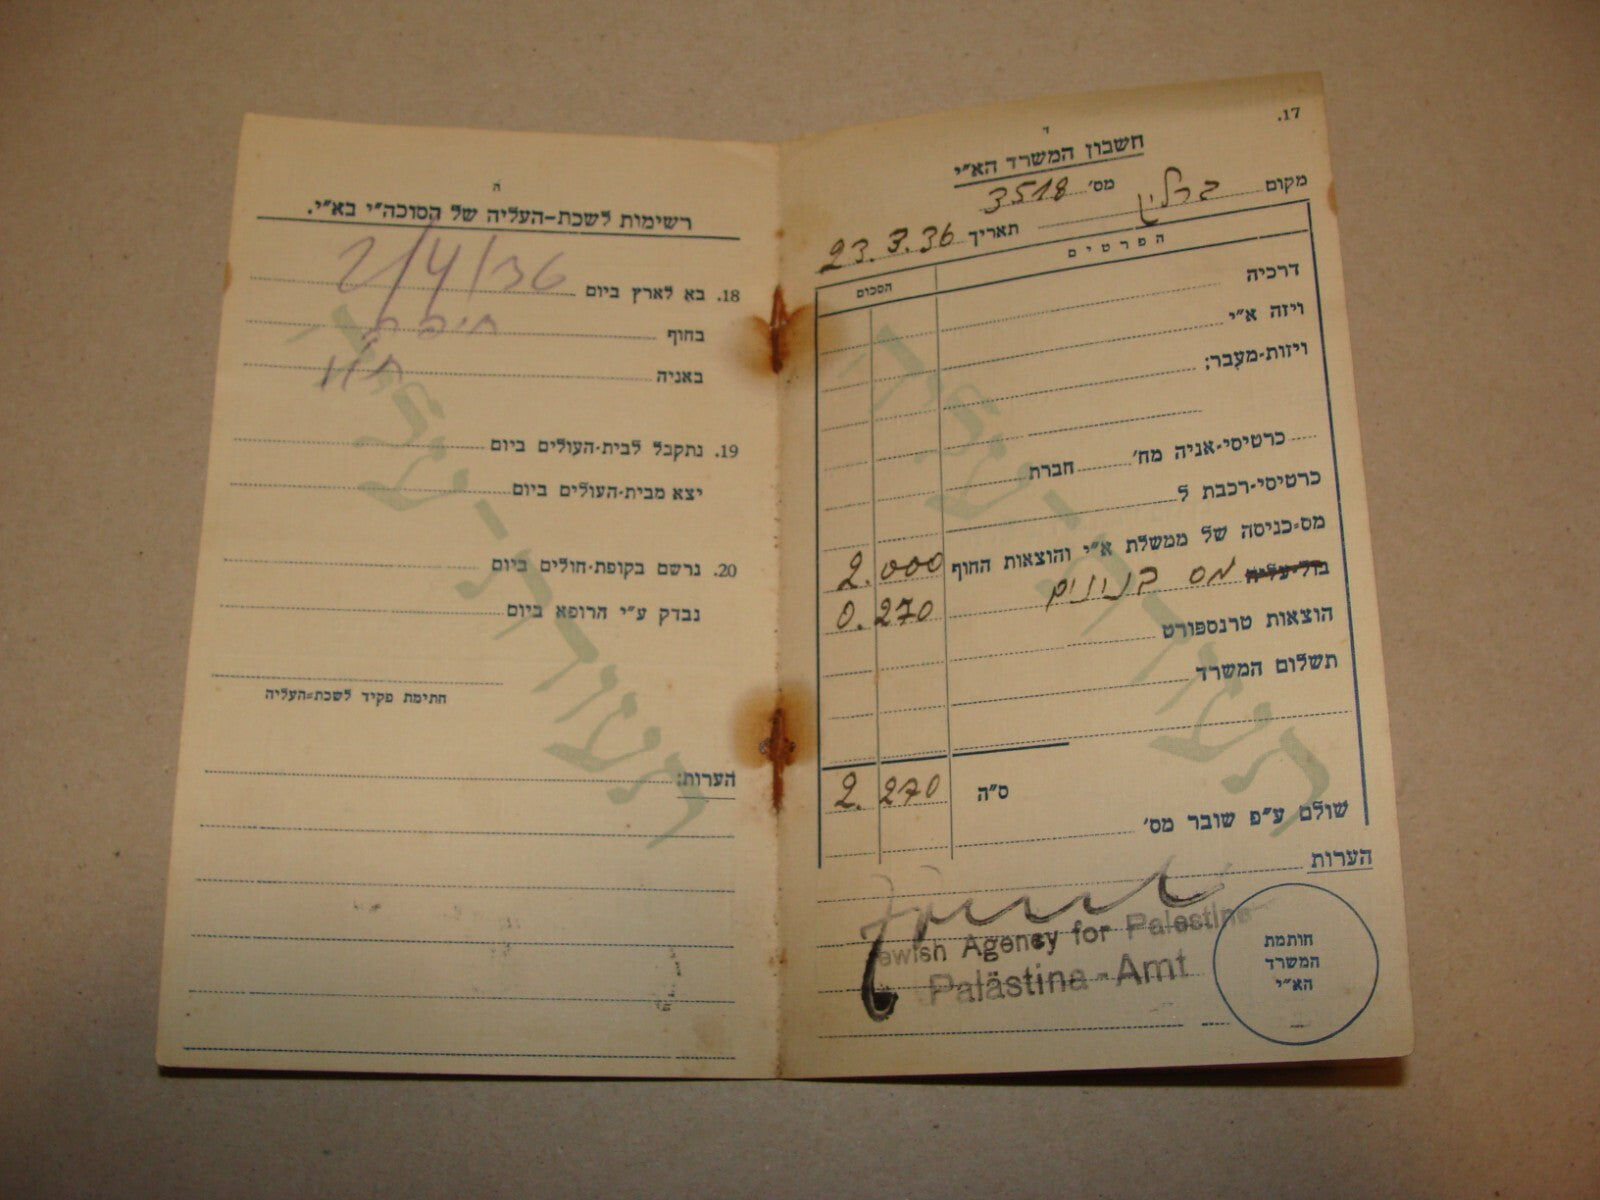 17.
ד
חשבון המשרד הא״י
מקום ברלין מס׳ 3518
תאריך 23.3.36
הפרטים הסכום
דרכיה
ויזה א״י
ויזות-מעבר:
כרטיסי-אניה מח׳ חברת
כרטיסי-רכבת ל
מס-כניסה של ממשלת א״י והוצאות החוף 2.000
בול-עליה מס בנינים 0.270
הוצאות טרנספורט
תשלום המשרד
ס״ה 2.270
שולם ע״פ שובר מס׳
הערות
Jewish Agency for Palestine
Palästina-Amt
חותמת
המשרד
הא״י
ה
רשימות לשכת-העליה של הסוכה״י בא״י.
18. בא לארץ ביום 2/4/36
בחוף חיפה
באניה
19. נתקבל לבית-העולים ביום
יצא מבית-העולים ביום
20. נרשם בקופת-חולים ביום
נבדק ע״י הרופא ביום
חתימת פקיד לשכת-העליה
הערות:
תעודת-עליה
תעודת-עליה